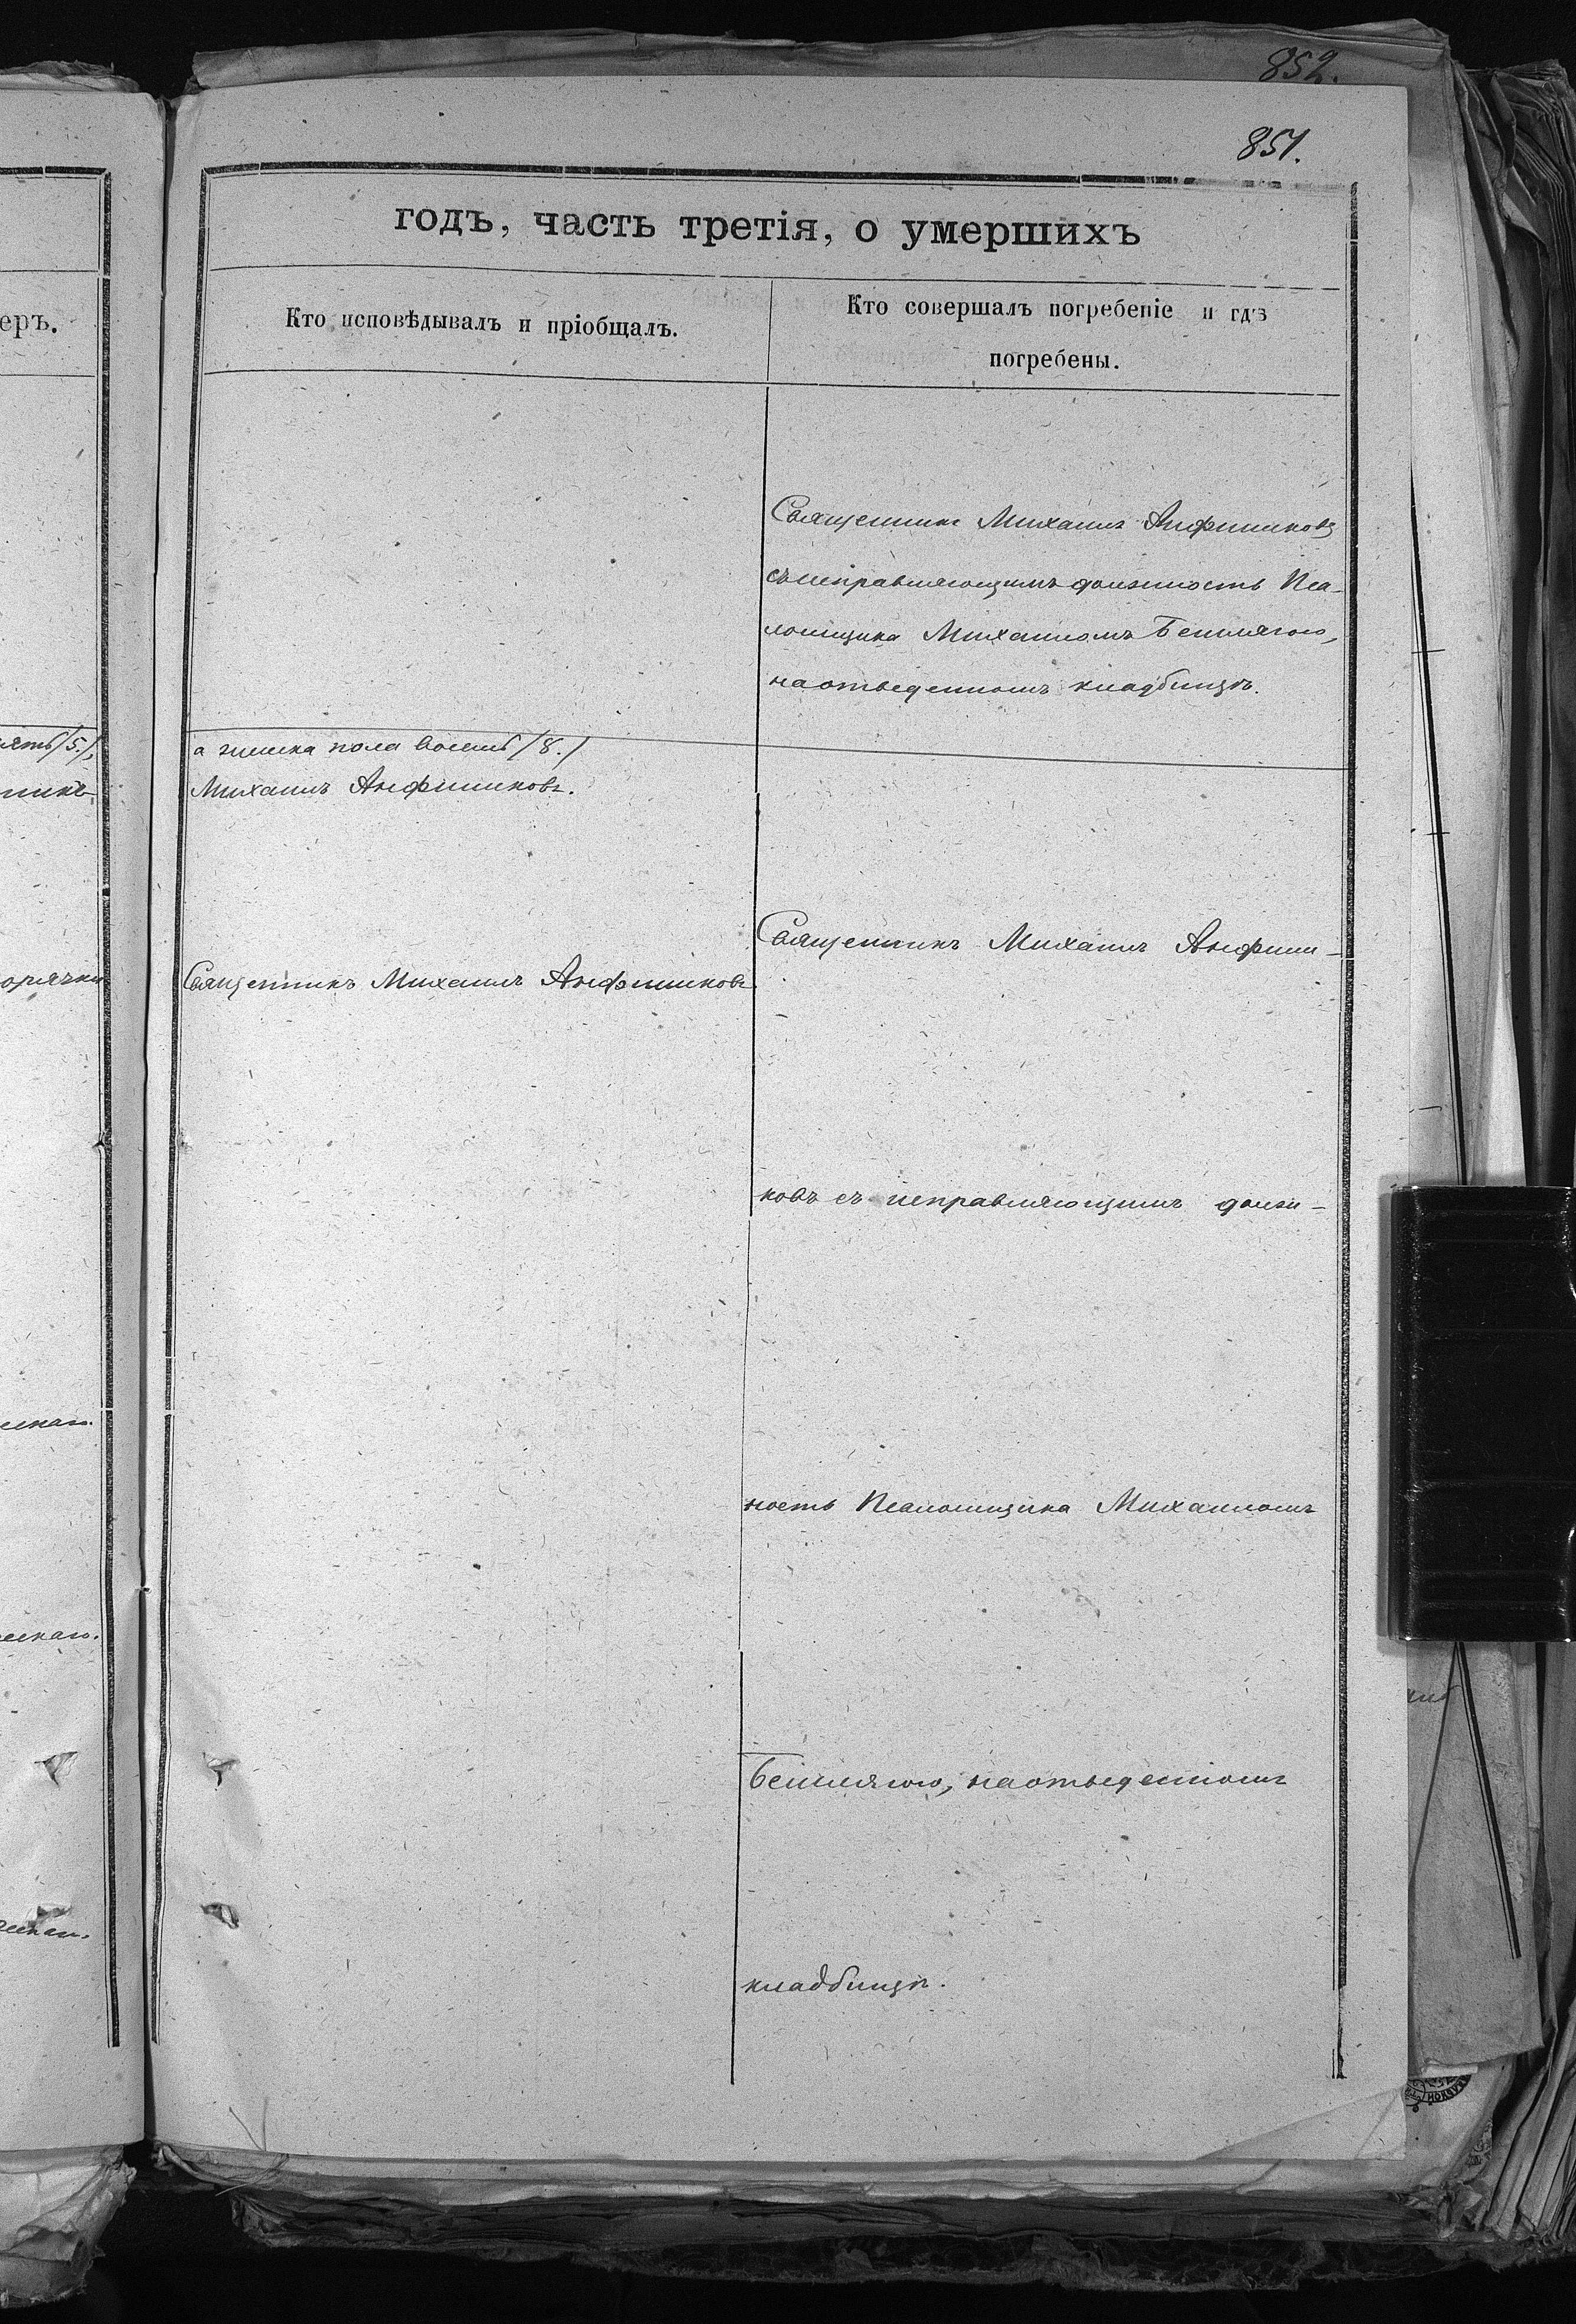 852.
851.
годъ, часть третія, о умершихъ
еръ.
Кто исповѣдывалъ и пріобщалъ.
Кто совершалъ погребеніе и гдѣ
погребены.
Священникъ Михаилъ Анфиликовъ
съ исправляющимъ должность Пса-
ломщика Михаиломъ
на отведенномъ кладбищѣ.
/5./,
а женска пола восемь /8./
Михаилъ Анфиликовъ.
Священникъ Михаилъ Анфили-
Священникъ Михаилъ Анфиликовъ.
ковъ съ исправляющимъ долж-
ность Псаломщика Михаиломъ
на отведенномъ
кладбищѣ.